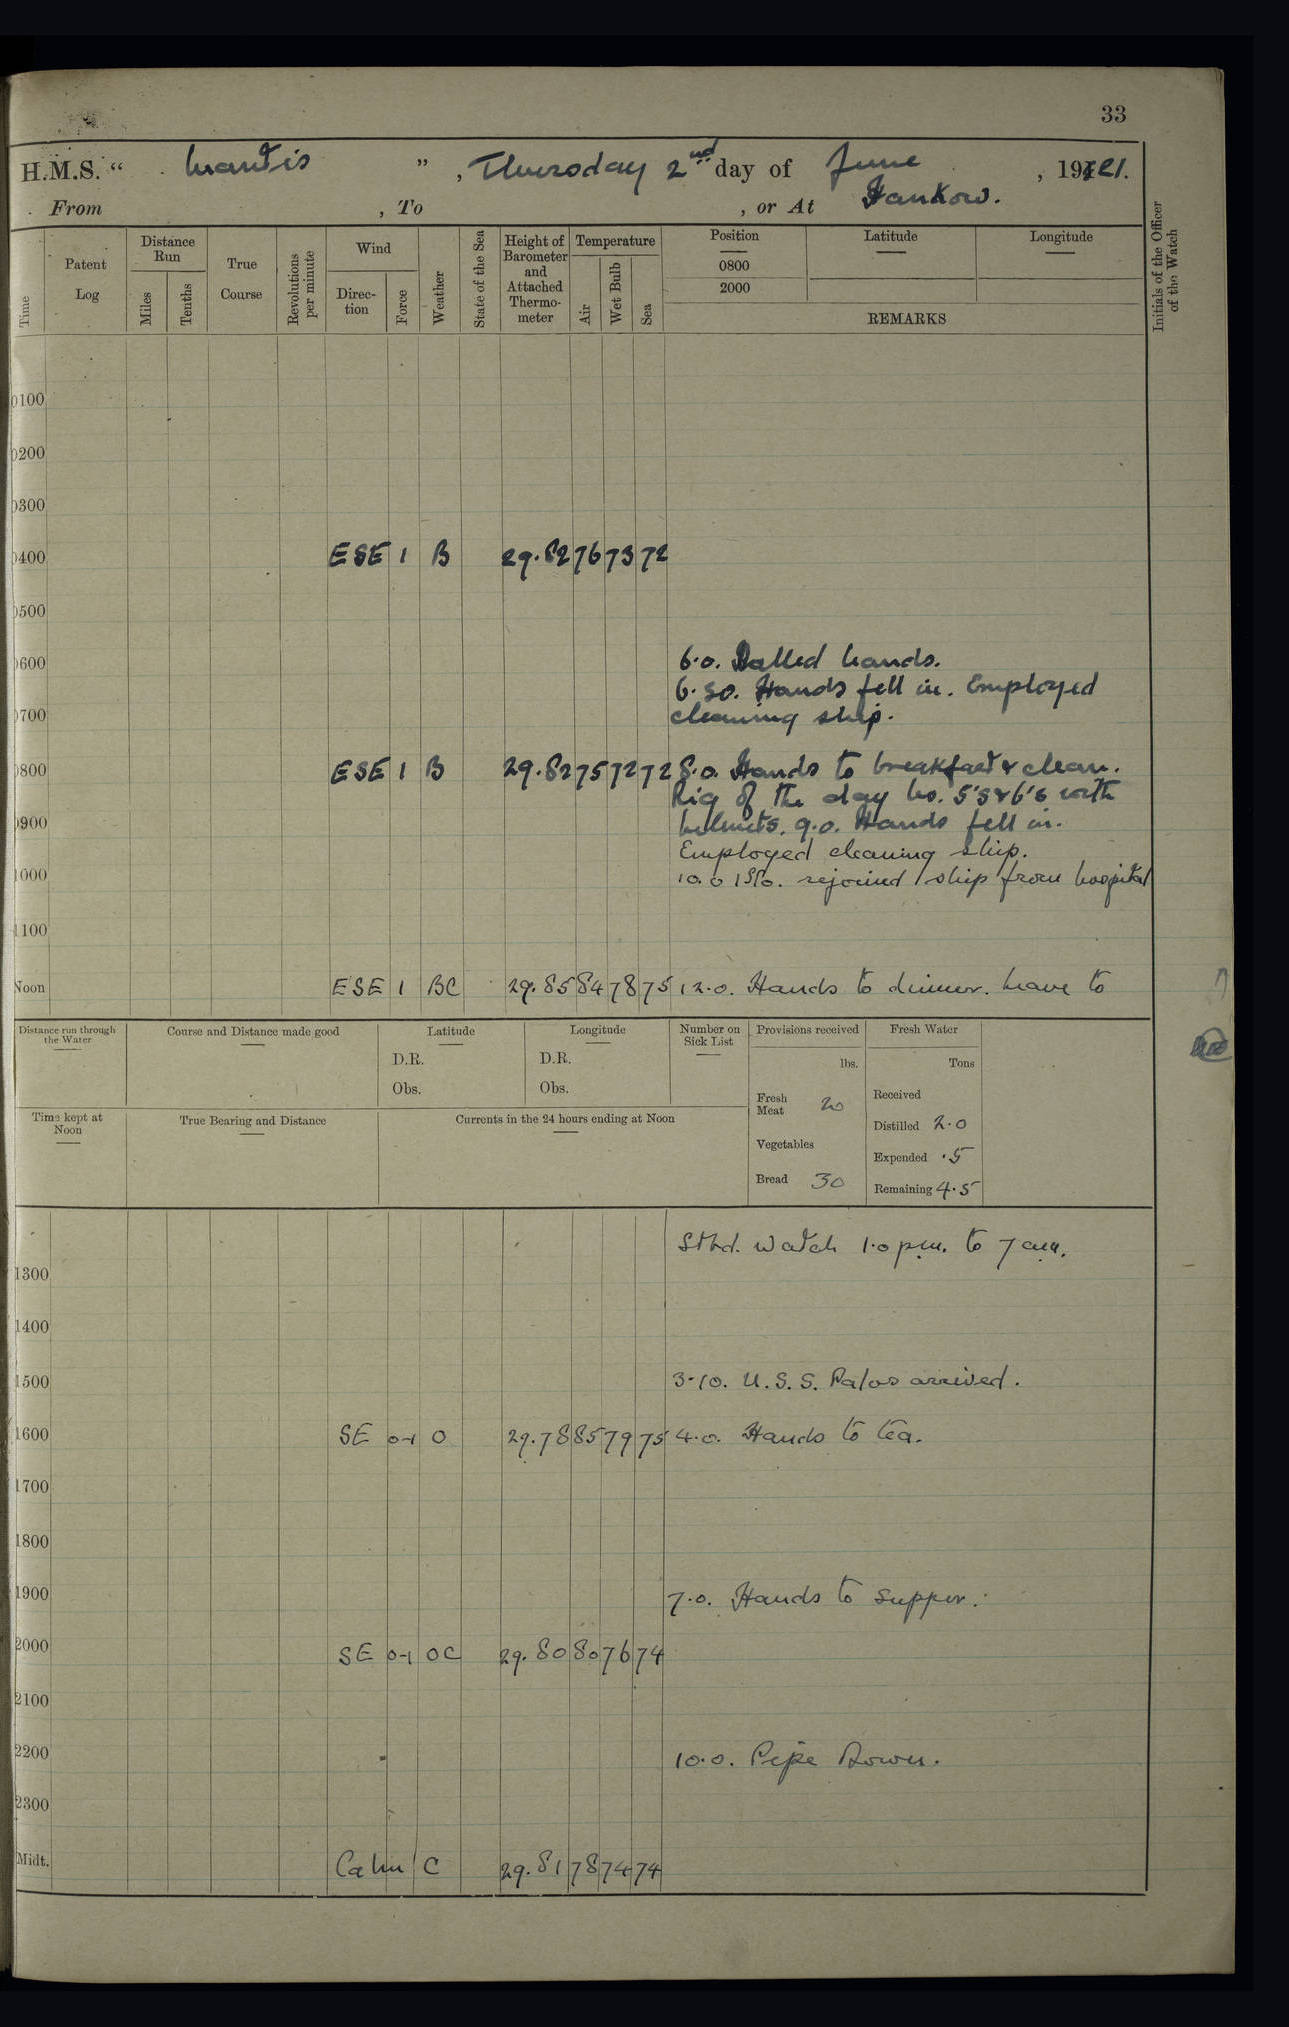 33
H.M.S. “ Mantis ”, Thursday 2nd day of June, 1921.
From , To , or At Hankow.
Time
Patent Log
Distance Run
Miles
Tenths
True Course
Revolutions per minute
Wind
Direc-tion
Force
Weather
State of the Sea
Height of Barometer and Attached Thermo-meter
Temperature
Air
Wet Bulb
Sea
Position
0800
2000
Latitude
Longitude
REMARKS
Initials of the Officer of the Watch
0100
0200
0300
0400 ESE 1 B 29.82 76 73 72
0500
0600 6.0. Called hands.
6.30. Hands fell in. Employed
0700 cleaning ship.
0800 ESE 1 B 29.82 75 72 72 8.0. Hands to breakfast & clean.
Rig of the day No. 5's & 6's with
0900 helmets. 9.0. Hands fell in.
Employed cleaning ship.
1000 10.0 rejoined ship from hospital
1100
Noon ESE 1 BC 29.85 84 78 75 12.0. Hands to dinner. Leave to
Distance run through the Water
Course and Distance made good
Latitude
D.R.
Obs.
Longitude
D.R.
Obs.
Number on Sick List
Provisions received
lbs.
Fresh Meat 20
Vegetables
Bread 30
Fresh Water
Tons
Received
Distilled 2.0
Expended .5
Remaining 4.5
Time kept at Noon
True Bearing and Distance
Currents in the 24 hours ending at Noon
Stbd. Watch 1.0 p.m. to 7 a.m.
1300
1400
1500 3-10. U.S.S. Palos arrived.
1600 SE 0-1 O 29.78 85 79 75 4.0. Hands to tea.
1700
1800
1900 7.0. Hands to supper.
2000 SE 0-1 OC 29.80 80 76 74
2100
2200 10.0. Pipe Down.
2300
Midt. Calm C 29.81 78 74 74